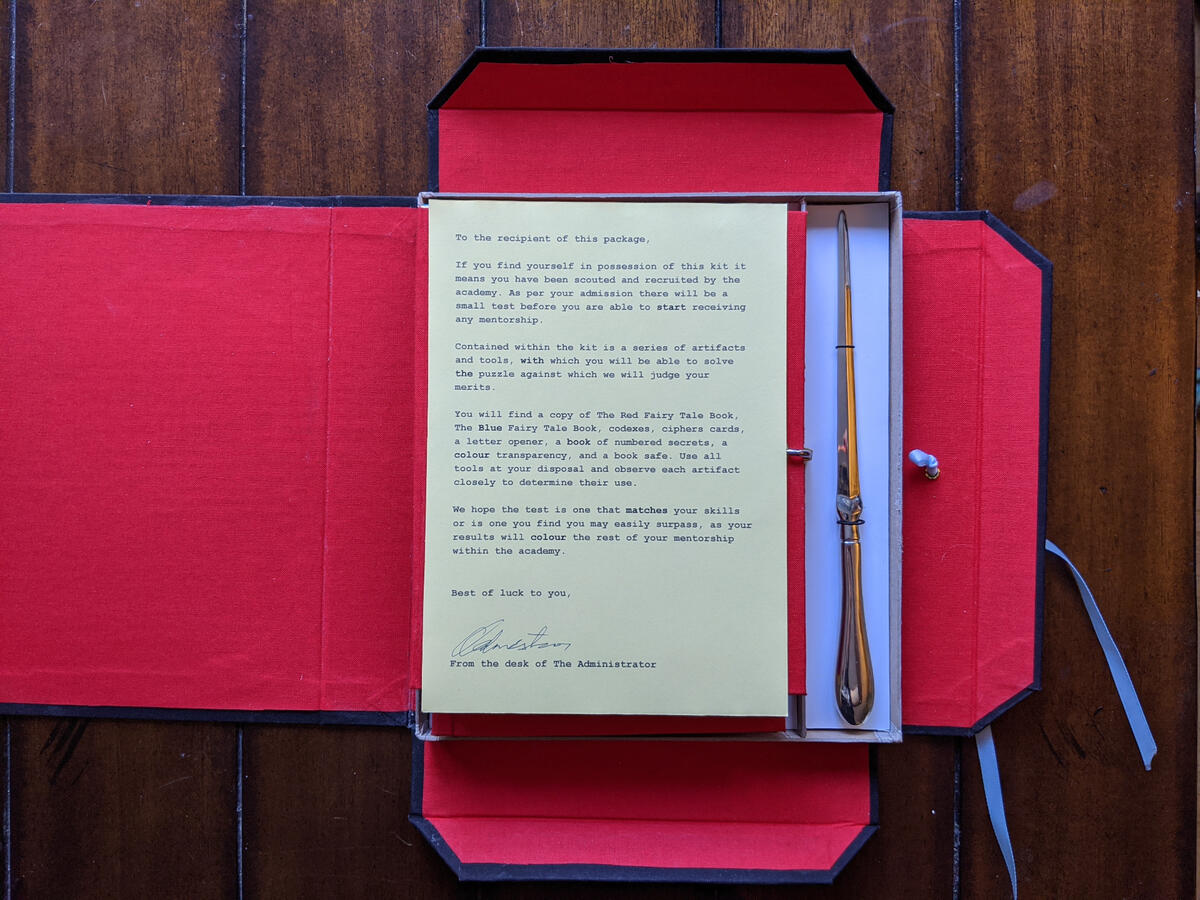 To the recipient of this package,
If you find yourself in possession of this kit it
means you have been scouted and recruited by the
academy. As per your admission there will be a
small test before you are able to start receiving
any mentorship.
Contained within the kit is a series of artifacts
and tools, with which you will be able to solve
the puzzle against which we will judge your
merits.
You will find a copy of The Red Fairy Tale Book,
The Blue Fairy Tale Book, codexes, ciphers cards,
a letter opener, a book of numbered secrets, a
colour transparency, and a book safe. Use all
tools at your disposal and observe each artifact
closely to determine their use.
We hope the test is one that matches your skills
or is one you find you may easily surpass, as your
results will colour the rest of your mentorship
within the academy.
Best of luck to you,
From the desk of The Administrator